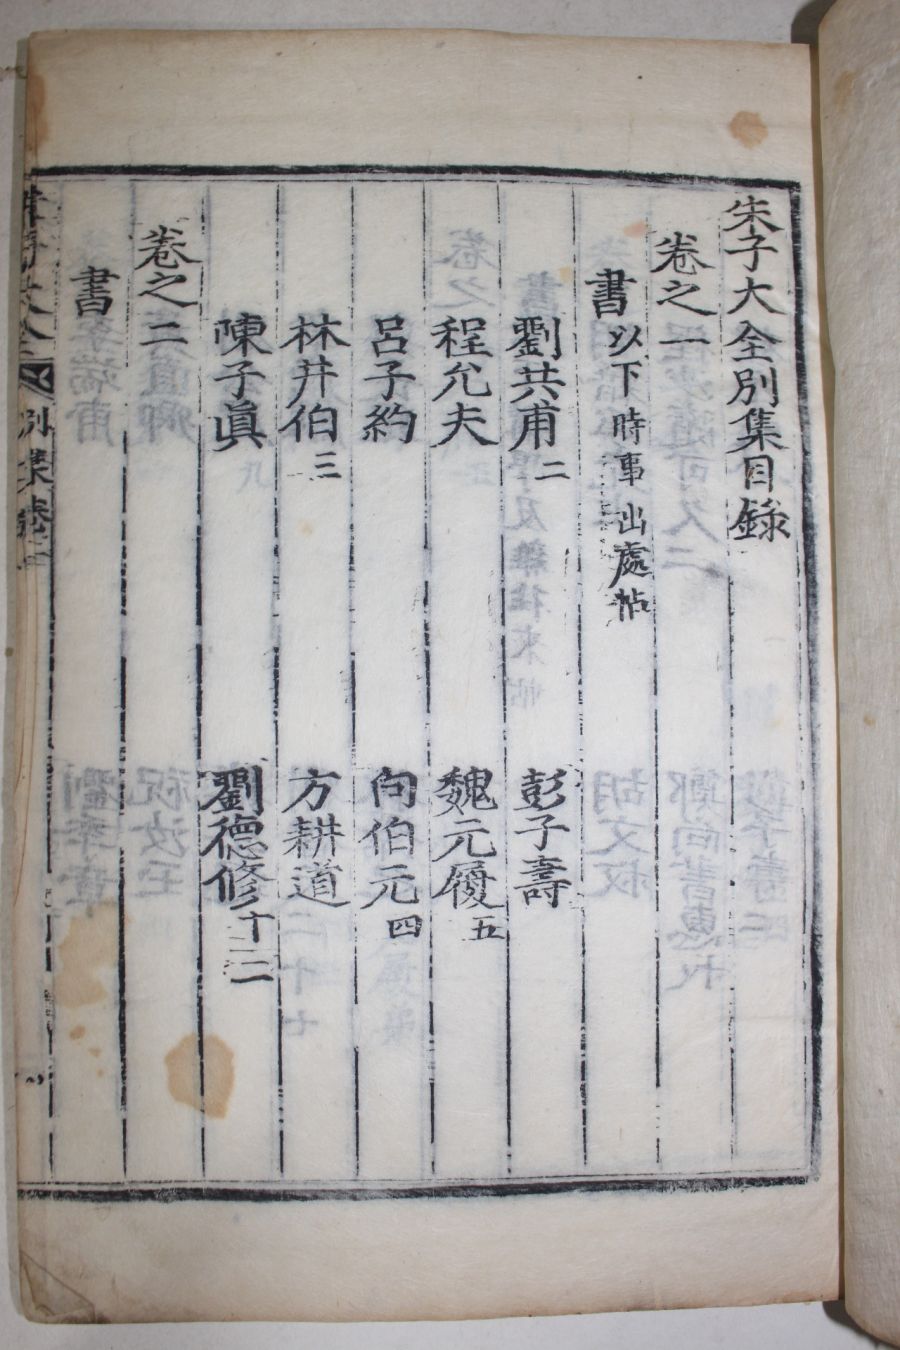 朱子大全別集目錄
卷之一
書 以下時事出處帖
劉共甫 二 彭子壽
程允夫 魏元履 五
呂子約 向伯元 四
林井伯 三 方耕道
陳子眞 劉德修 十二
卷之二
書